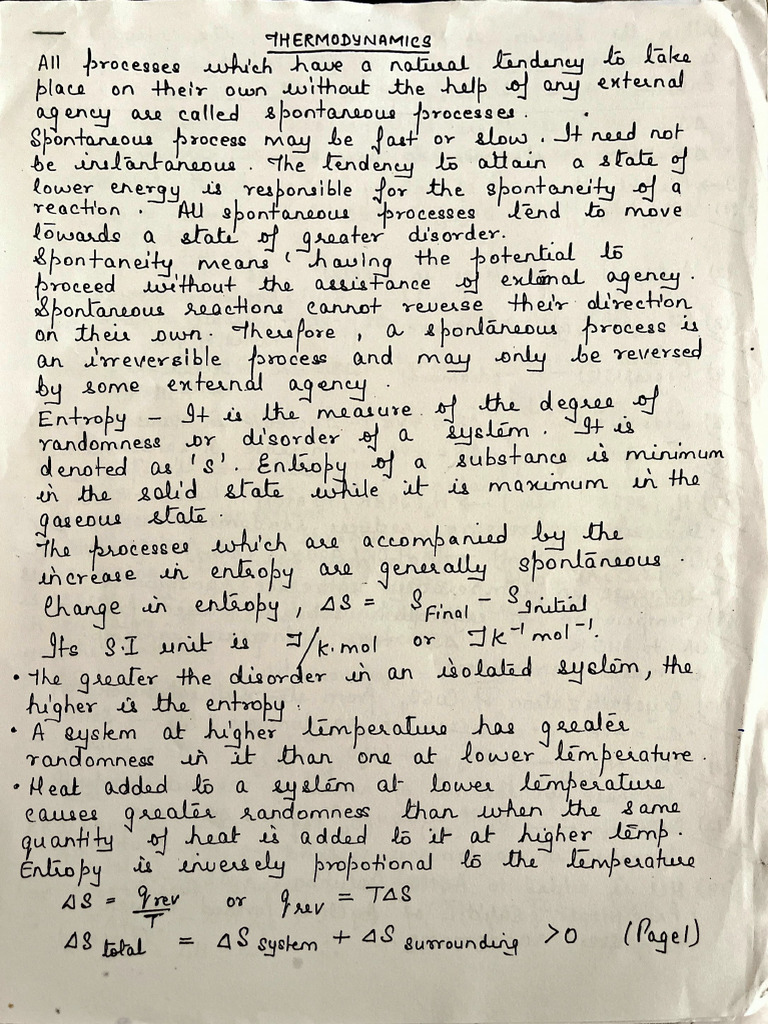 THERMODYNAMICS
All processes which have a natural tendency to take
place on their own without the help of any external
agency are called spontaneous processes.
Spontaneous process may be fast or slow. It need not
be instantaneous. The tendency to attain a state of
lower energy is responsible for the spontaneity of a
reaction. All spontaneous processes tend to move
towards a state of greater disorder.
Spontaneity means ' having the potential to
proceed without the assistance of external agency.
Spontaneous reactions cannot reverse their direction
on their own. Therefore, a spontaneous process is
an irreversible process and may only be reversed
by some external agency.
Entropy - It is the measure of the degree of
randomness or disorder of a system. It is
denoted as 'S'. Entropy of a substance is minimum
in the solid state while it is maximum in the
gaseous state.
The processes which are accompanied by the
increase in entropy are generally spontaneous.
Change in entropy, ΔS = S Final - S Initial
Its S.I unit is J/K.mol or JK⁻¹ mol⁻¹.
• The greater the disorder in an isolated system, the
higher is the entropy.
• A system at higher temperature has greater
randomness in it than one at lower temperature.
• Heat added to a system at lower temperature
causes greater randomness than when the same
quantity of heat is added to it at higher temp.
Entropy is inversely propotional to the temperature
ΔS = q rev / T or q rev = TΔS
ΔS total = ΔS system + ΔS surrounding >0 (Page1)